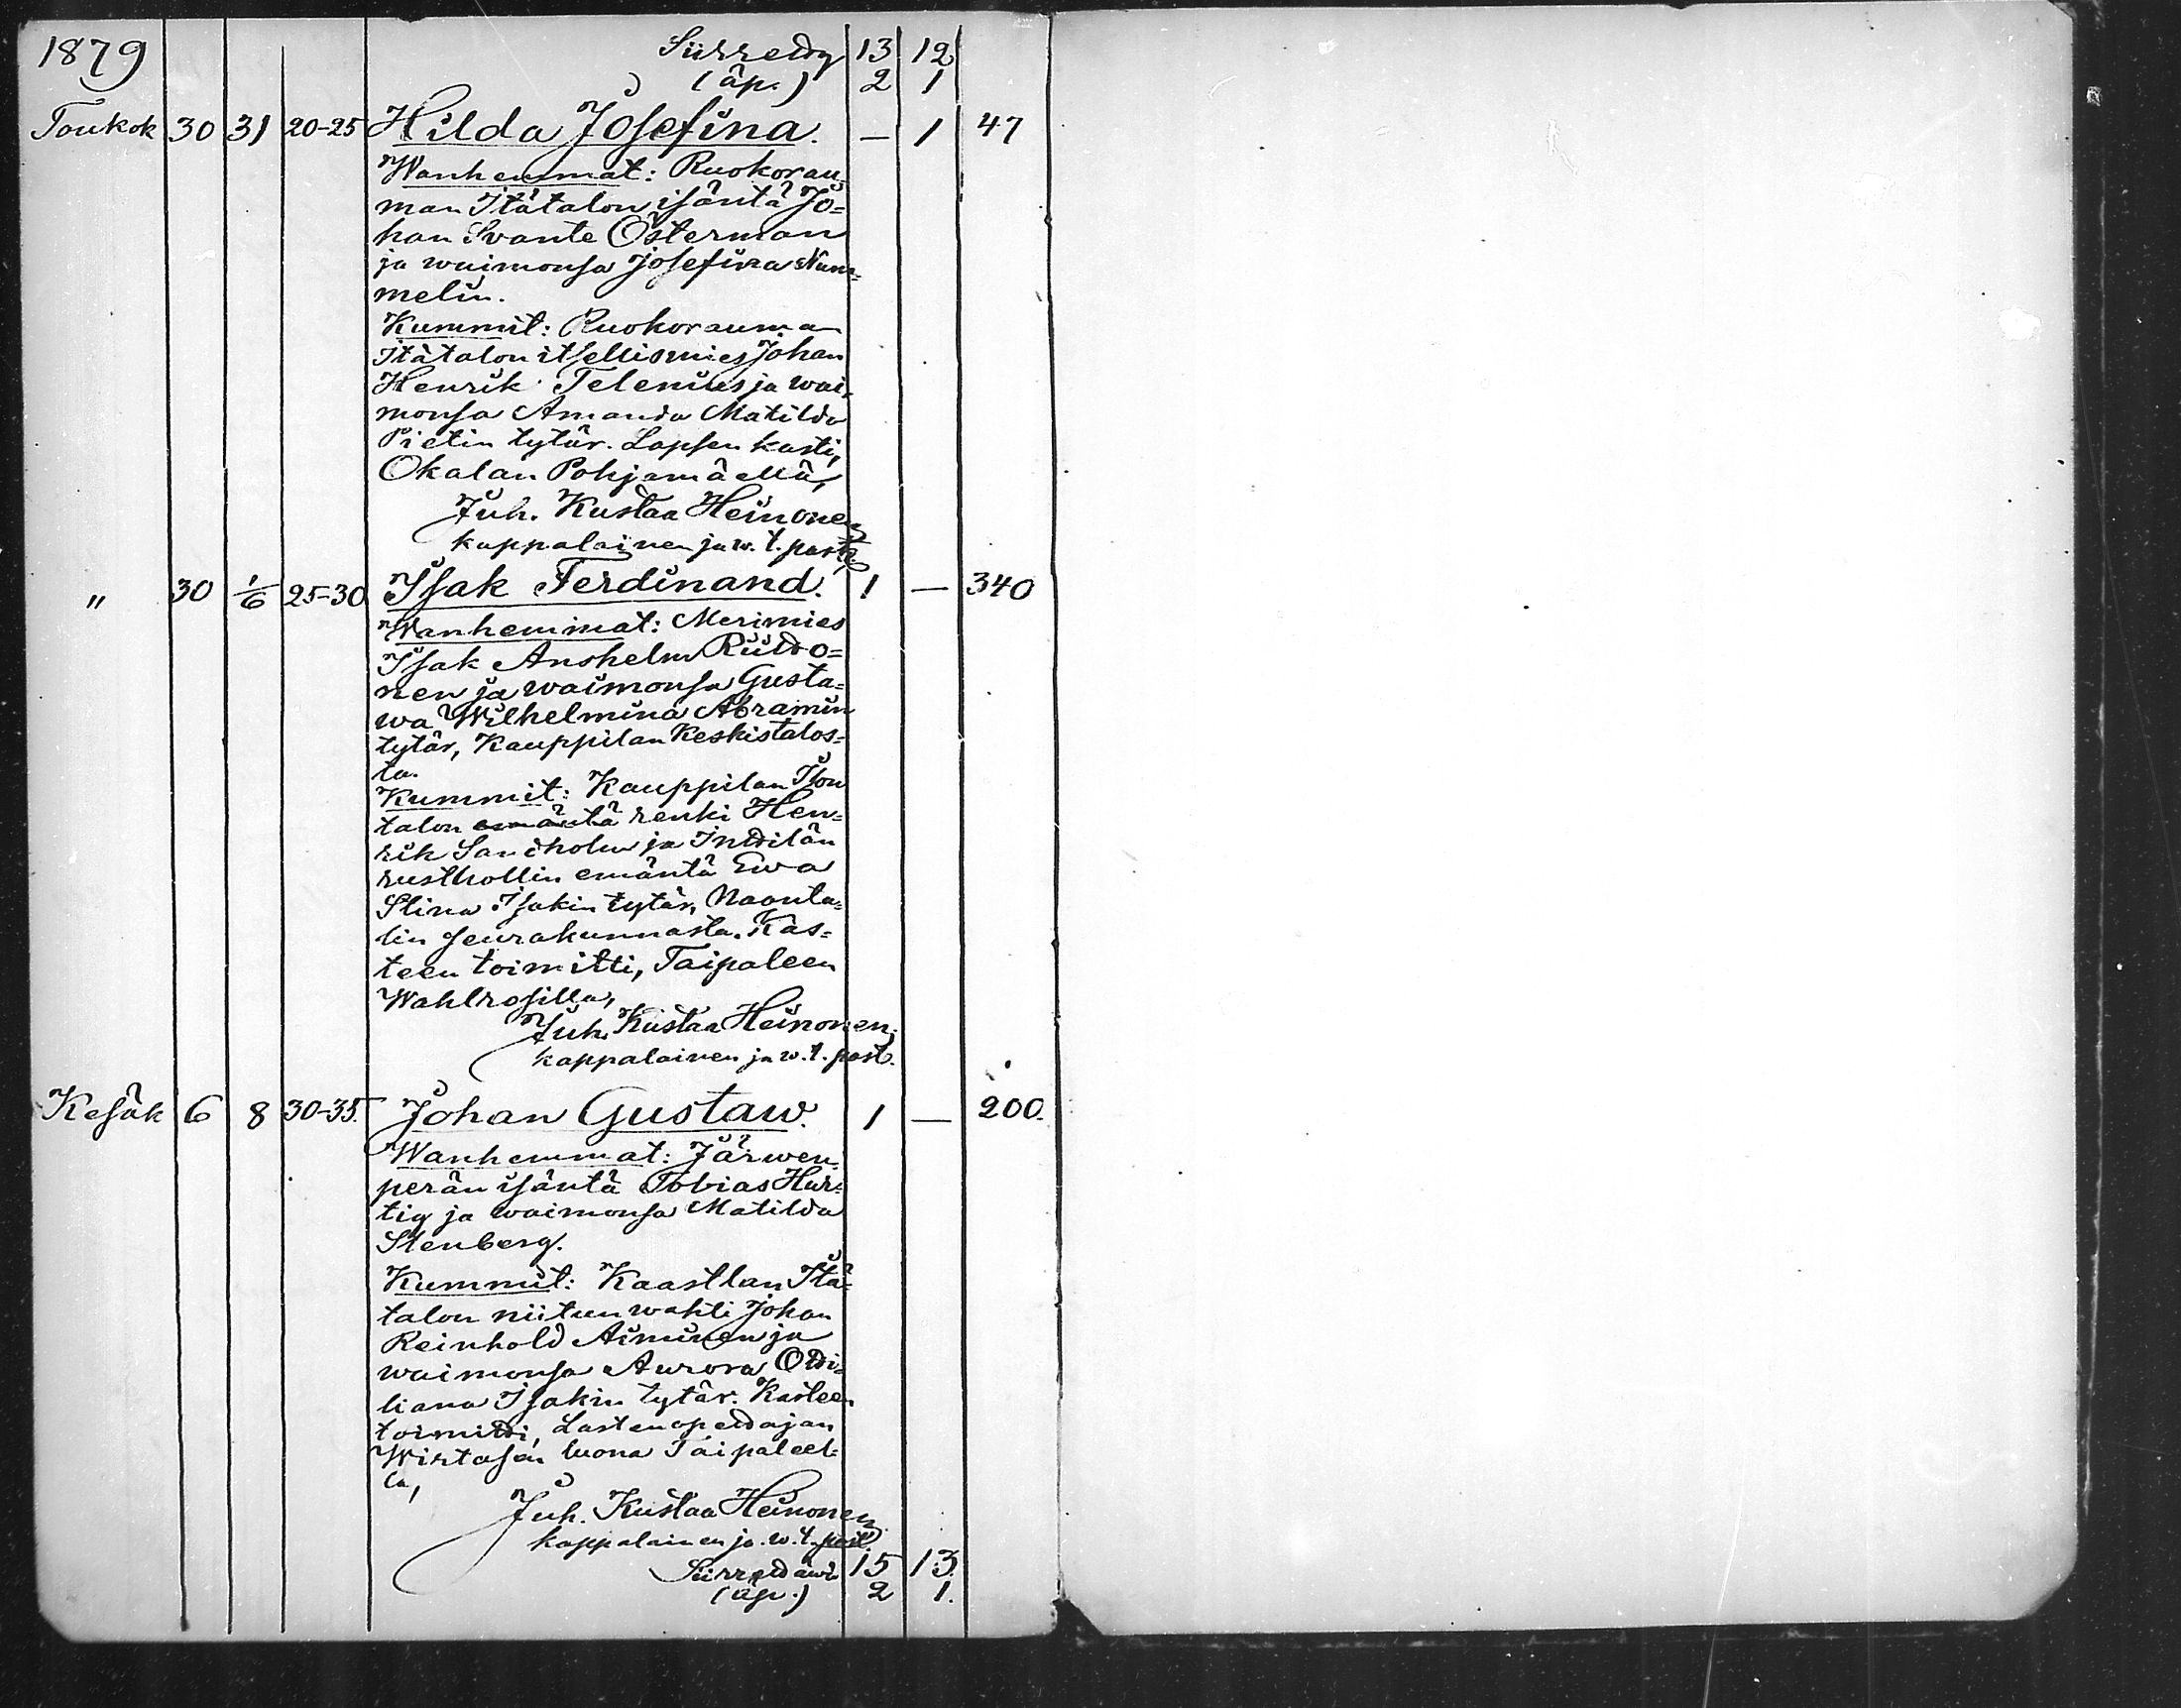 1879 Siirretty 13 12
(äp.) 2 1
Toukok 30 31 20-25 Hilda Josefina. — 1 47
Wanhemmat: Ruokorau-
man Itätalon isäntä Jo=
han Svante Österman
ja waimonsa Josefina Num=
melin.
Kummit: Ruokorauman
Itätalon itsellismies Johan
Henrik Telenius ja wai-
monsa Amanda Matilda
Pietin tytär. Lapsen kasti,
Okalan Pohjamäellä,
Juh. Kustaa Heinonen
kappalainen ja w. t. past.
" 30 1/6 25-30 Isak Ferdinand. 1 — 340
Wanhemmat: Merimies
Isak Anshelm
nen ja waimonsa Gusta=
wa Wilhelmina Abramin
tytär, Kauppilan Keskistalos=
ta.
Kummit: Kauppilan Ison
talon emäntä renki Hen=
rik Sandholm ja Inttilän
rusthollin emäntä Ewa
Stina Isakin tytär, Naanta=
lin seurakunnasta. Kas=
teen toimitti, Taipaleen
Wahlrosilla,
Juh. Kustaa Heinonen,
kappalainen ja w. t. past.
Kesäk 6 8 30-35. Johan Gustaw. 1 — 200.
Wanhemmat: Järwen-
perän isäntä Tobias Hur=
tig ja waimonsa Matilda
Stenberg.
Kummit: Kaastlan Itä-
talon niitun wahti Johan
Reinhold Aiminen ja
waimonsa Aurora Otti=
liana Isakin tytär. Kasteen
toimitti, Lastenopettajan
Wirtasen luona Taipaleel=
la,
Juh. Kustaa Heinonen
kappalainen ja w. t. past.
Siirrettäwä 15 13.
(äp.) 2 1.